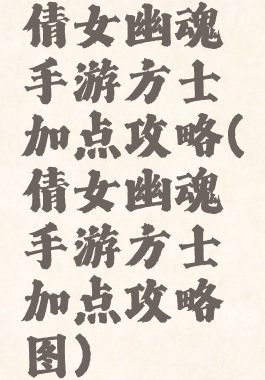 倩女幽魂
手游方士
加点攻略(
倩女幽魂
手游方士
加点攻略
图)